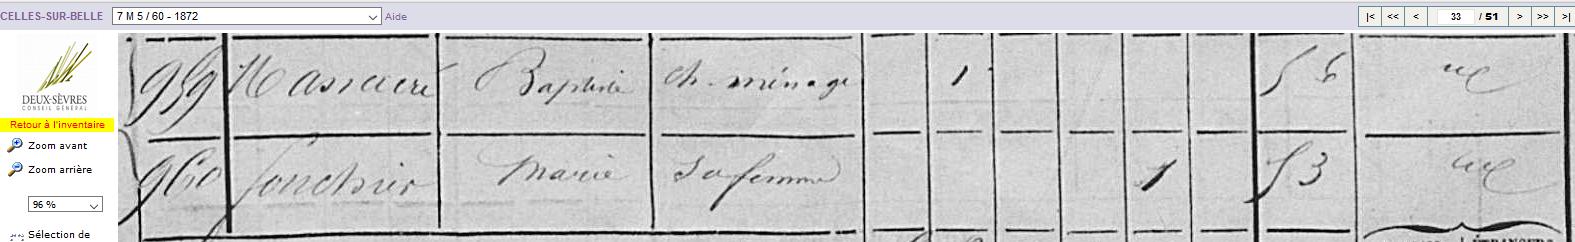 CELLES-SUR-BELLE 7 M 5 / 60 - 1872 Aide |< << < 33 / 51 > >> >|
DEUX-SÈVRES
CONSEIL GÉNÉRAL
Retour à l'inventaire
Zoom avant
Zoom arrière
96 %
Sélection de
959 Massacré Baptiste ch. ménage 1 56
960 Fonchier Marie Sa femme 1 53